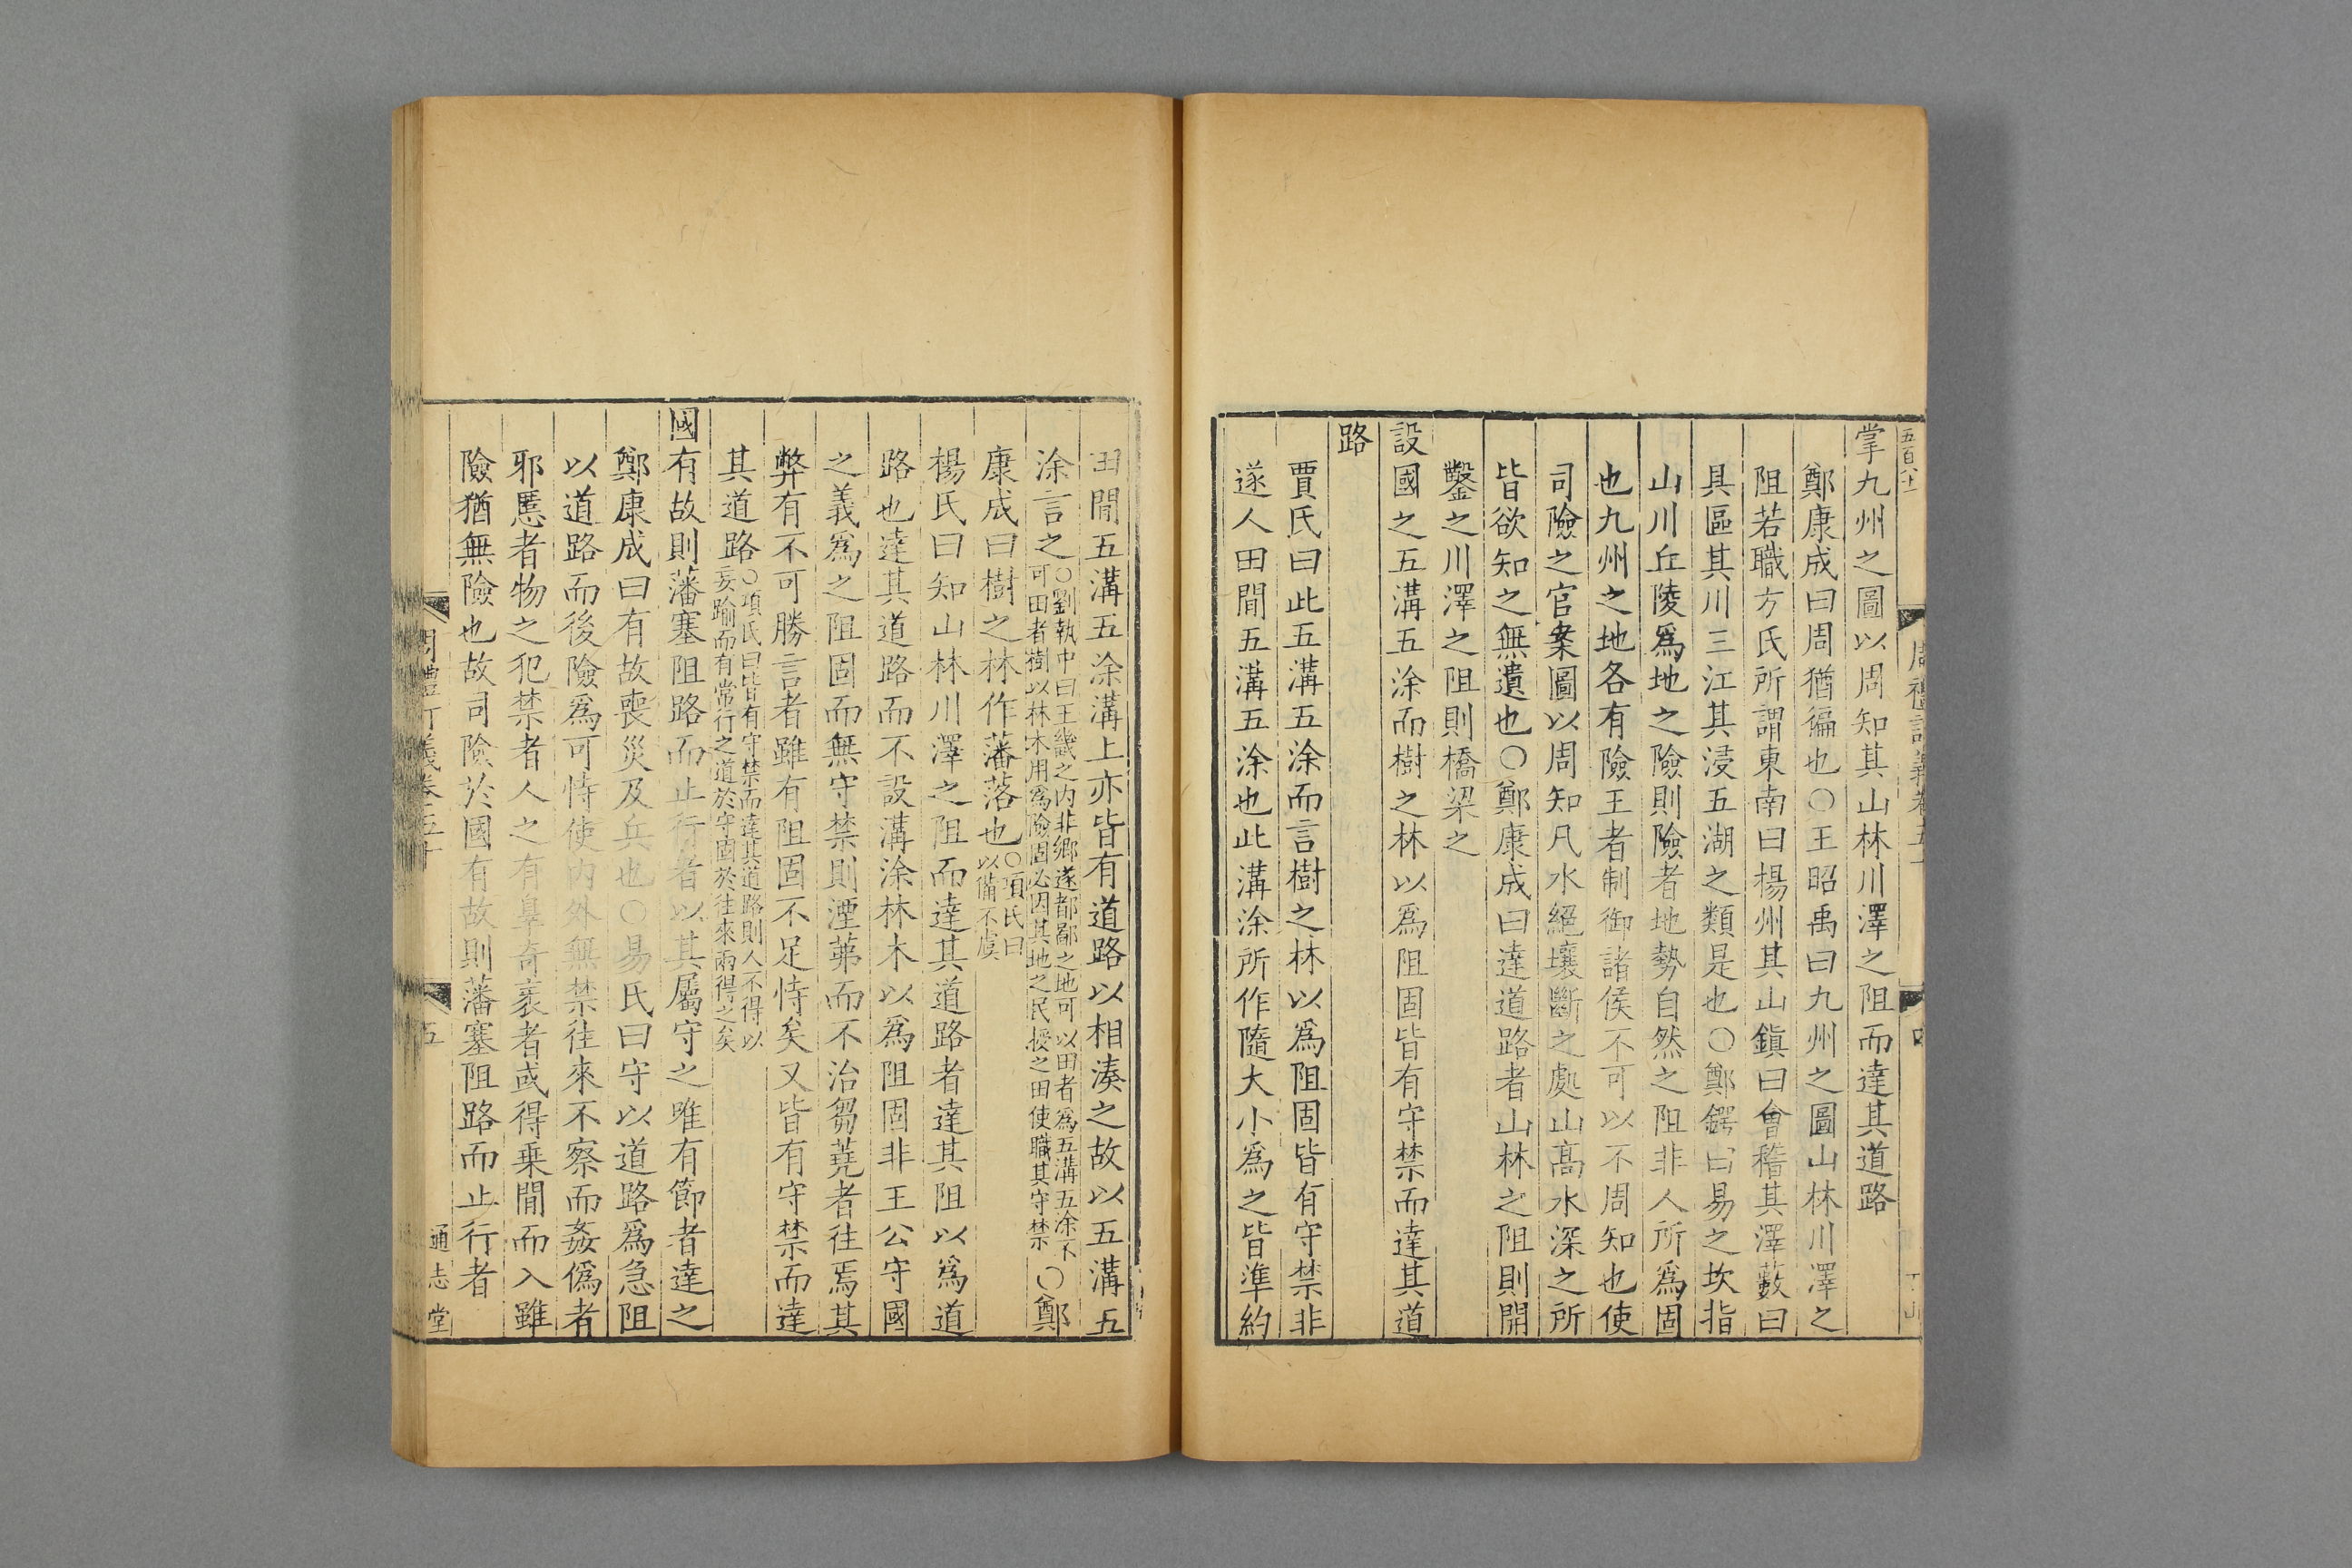 掌九州之圖以周知其山林川澤之阻而達其道路
鄭康成曰周猶徧也○王昭禹曰九州之圖山林川澤之
阻若職方氏所謂東南曰揚州其山鎮曰會稽其澤藪曰
具區其川三江其浸五湖之類是也○鄭鍔曰易之坎指
山川丘陵爲地之險則險者地勢自然之阻非人所爲固
也九州之地各有險王者制御諸侯不可以不周知也使
司險之官案圖以周知凡水絕壤斷之處山高水深之所
皆欲知之無遺也○鄭康成曰達道路者山林之阻則開
鑿之川澤之阻則橋梁之
設國之五溝五涂而樹之林以爲阻固皆有守禁而達其道
路
賈氏曰此五溝五涂而言樹之林以爲阻固皆有守禁非
遂人田間五溝五涂也此溝涂所作隨大小爲之皆準約
田閒五溝五涂溝上亦皆有道路以相湊之故以五溝五
涂言之○劉執中曰王畿之内非鄉遂都鄙之地可以田者爲五溝五涂不可田者樹以林木用爲險固必因其地之民授之田使職其守禁○鄭
康成曰樹之林作藩落也○項氏曰以備不虞
楊氏曰知山林川澤之阻而達其道路者達其阻以爲道
路也達其道路而不設溝涂林木以爲阻固非王公守國
之義爲之阻固而無守禁則湮茀而不治芻蕘者往焉其
弊有不可勝言者雖有阻固不足恃矣又皆有守禁而達
其道路○項氏曰皆有守禁而達其道路則人不得以妄踰而有常行之道於守固於往來兩得之矣
國有故則藩塞阻路而止行者以其屬守之唯有節者達之
鄭康成曰有故喪災及兵也○易氏曰守以道路爲急阻
以道路而後險爲可恃使内外無禁往來不察而姦僞者
邪慝者物之犯禁者人之有辠奇衺者或得乗閒而入雖
險猶無險也故司險於國有故則藩塞阻路而止行者
五
通志堂